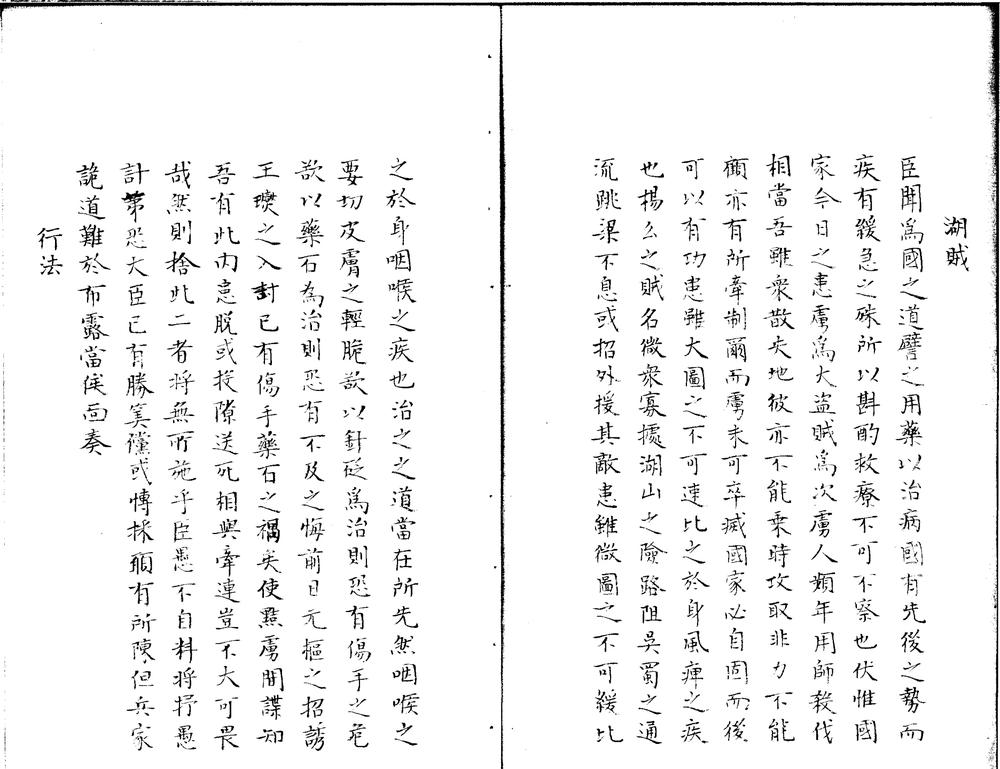 湖賊
臣聞爲國之道譬之用藥以治病國有先後之勢而
疾有緩急之殊所以斟酌救療不可不察也伏惟國
家今日之患虜爲大盜賊爲次虜人頻年用師殺伐
相當吾雖衆散失地彼亦不能乗時攻取非力不能
顧亦有所牽制爾而虜未可卒滅國家必自固而後
可以有功患雖大圖之不可速比之於身風痺之疾
也楊么之賊名微衆寡據湖山之險路阻吳蜀之通
流跳梁不息或招外援其敵患雖微圖之不可緩比
之於身咽喉之疾也治之之道當在所先然咽喉之
要切皮膚之輕脆欲以針砭爲治則恐有傷手之危
欲以藥石為治則恐有不及之悔前日元樞之招誘
王𤫉之入討已有傷手藥石之禍矣使黠虜間諜知
吾有此内患脱或投隙送死相與牽連豈不大可畏
哉然則捨此二者將無所施乎臣愚不自料將抒愚
計第恐大臣已有勝筭儻或博採頋有所陳但兵家
詭道難於布露當俟面奏
行法